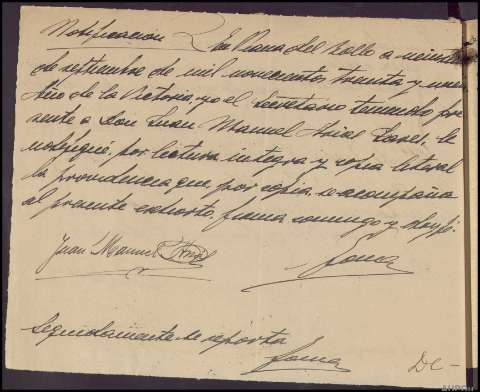 Notificación En Viana del Bollo a veinte
de septiembre de mil novecientos treinta y nueve
Año de la Victoria, yo el Secretario teniendo pre
sente a Don Juan Manuel Arias le
notifiqué, por lectura integra y copia literal
la providencia que, por copia, se acompaña
al presente exhorto, firma conmigo y doy fé.
Juan Manuel Arias
Seguidamente se reporta